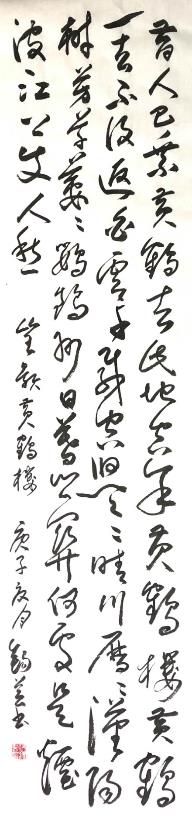 昔人已乘黄鶴去此地空餘黄鶴樓黄鶴
一去不復返白雲千載空悠々晴川歷々漢陽
樹芳草萋々鸚鵡洲日暮鄉關何處是煙
波江上使人愁 崔顥黄鶴樓 庚子夏月 書